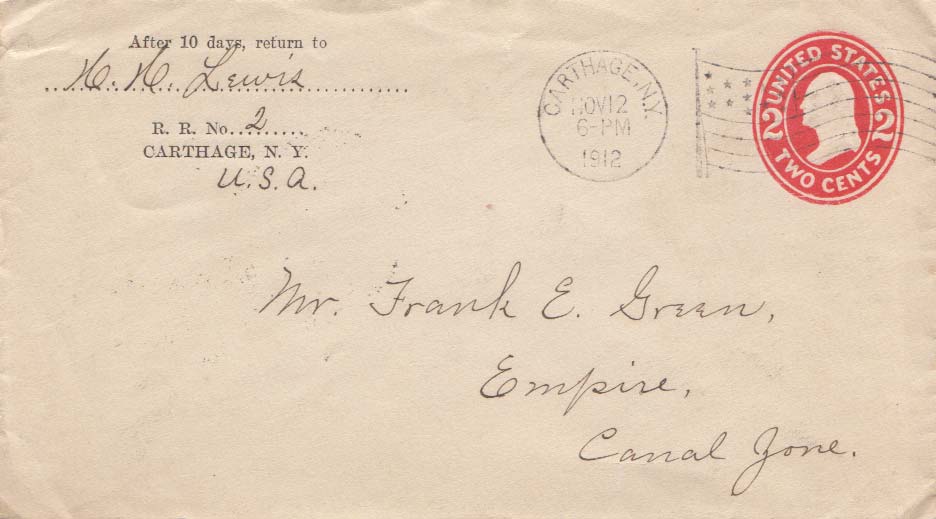 After 10 days, return to
H. H. Lewis
R. R. No. 2
CARTHAGE, N. Y.
U.S.A.
CARTHAGE, N.Y.
NOV 12
6-PM
1912
UNITED STATES
2 2
TWO CENTS
Mr. Frank E. Green,
Empire,
Canal Zone.